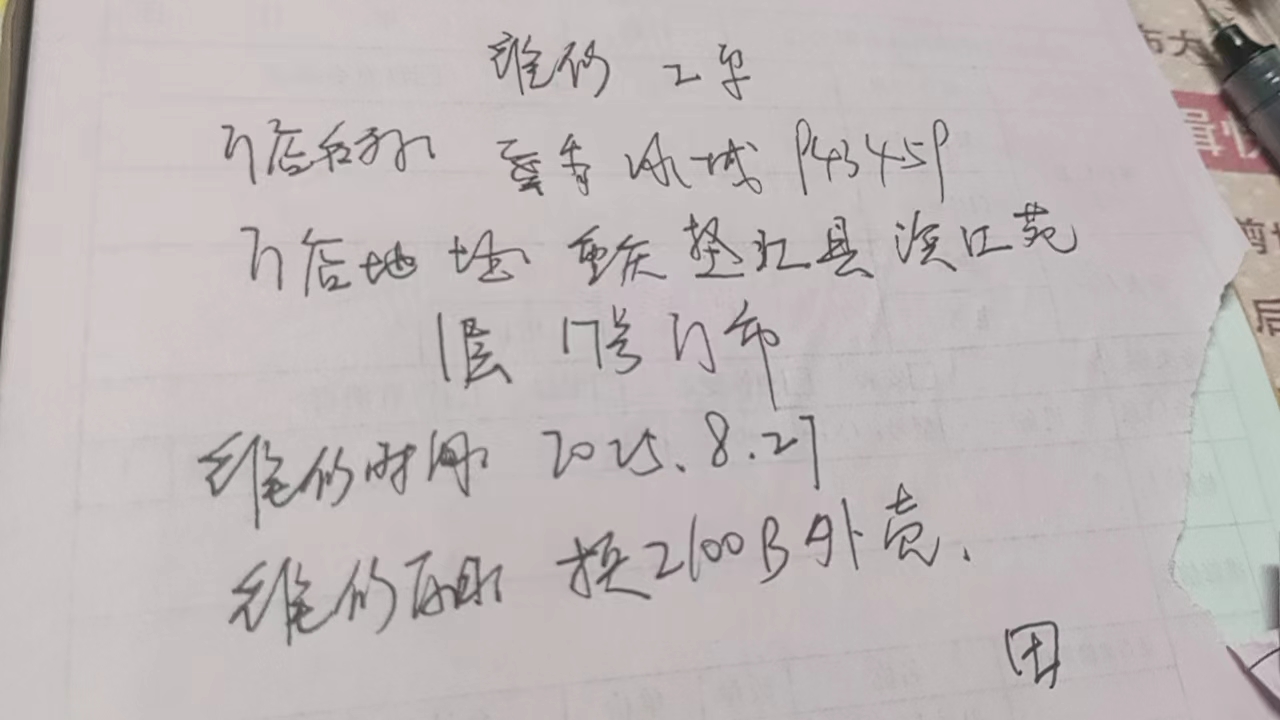 维修工单
门店名称 蜜雪冰城 P43459
门店地址 重庆垫江县滨江苑
1层 17号门市
维修时间 2025.8.27
维修项目 换2100B外壳.
田
布大
辑
剪
后